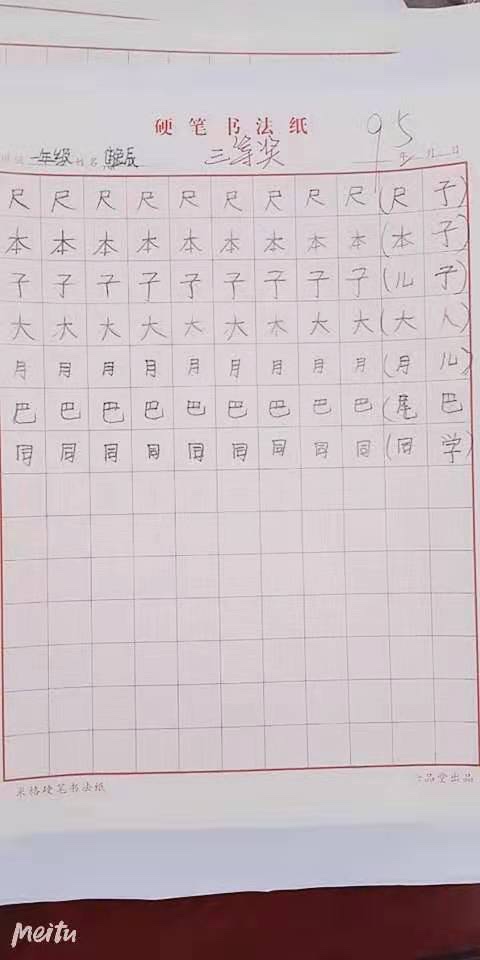 硬笔书法纸
95
三等奖
一年级 姓名 辰
年 月 日
尺 尺 尺 尺 尺 尺 尺 尺 尺 (尺 子)
本 本 本 本 本 本 本 本 本 (本 子)
子 子 子 子 子 子 子 子 子 (儿 子)
大 大 大 大 大 大 大 大 大 (大 人)
月 月 月 月 月 月 月 月 月 (月 儿)
巴 巴 巴 巴 巴 巴 巴 巴 巴 (尾 巴)
同 同 同 同 同 同 同 同 同 (同 学)
米格硬笔书法纸
品堂出品
meitu